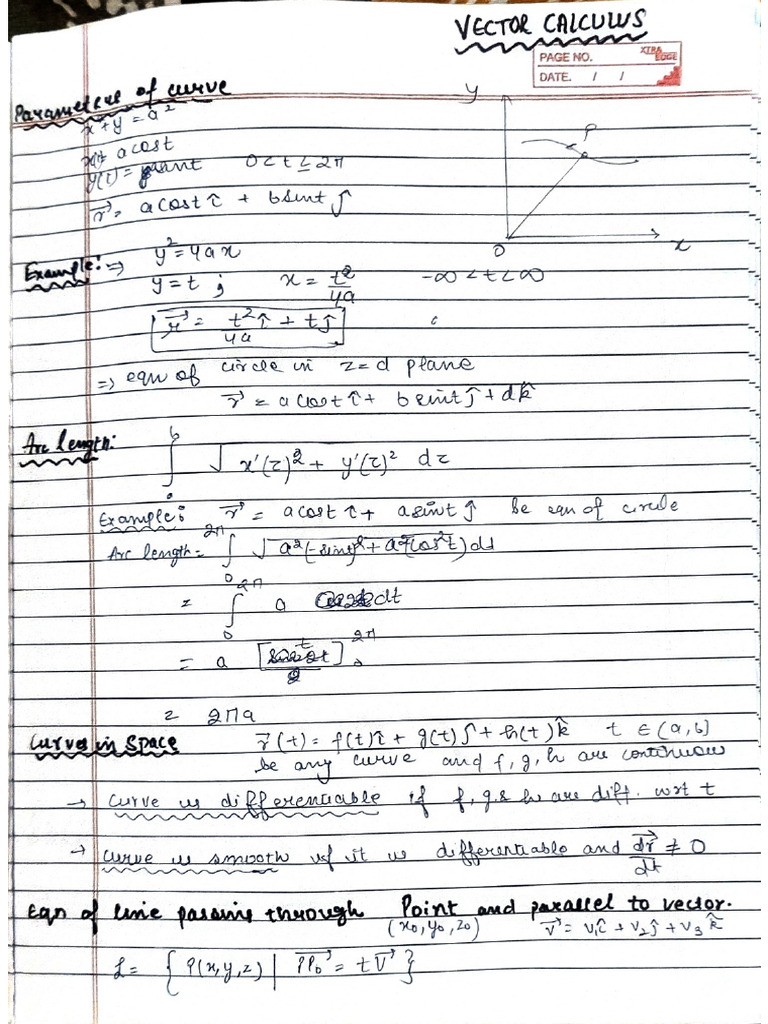 VECTOR CALCULUS
PAGE NO.
XTRA EDGE
DATE. / /
Parameters of curve
x²+y = a²
x(t) acost
y(t) = asint 0 < t ≤ 2π
r⃗ = acost î + bsint ĵ
y
P
O
x
Example: ⇒ y² = 4ax
y = t ; x = t²/4a -∞ < t < ∞
r⃗ = t²/4a î + t ĵ
⇒ eqn of circle in z=d plane
r⃗ = a cost î + b sint ĵ + d k̂
Arc length: ∫ b √ x'(τ)² + y'(τ)² dτ
Example: r⃗ = acost î + asint ĵ be eqn of circle
Arc length = ∫₀^2π √ a²(-sint)² + a²(cos²t) dt
= ∫₀^2π a dt
= a [t]₀^2π
= 2πa
Curves in space r⃗(t) = f(t)î + g(t)ĵ + h(t)k̂ t ∈ (a,b]
be any curve and f, g, h are continuous
→ curve is differentiable if f, g & h are diff. wrt t
→ curve is smooth if it is differentiable and dr⃗/dt ≠ 0
Eqn of line passing through Point and parallel to vector.
(x₀, y₀, z₀) v⃗ = v₁î + v₂ĵ + v₃k̂
L = { P(x,y,z) | PP₀⃗ = t v⃗ }